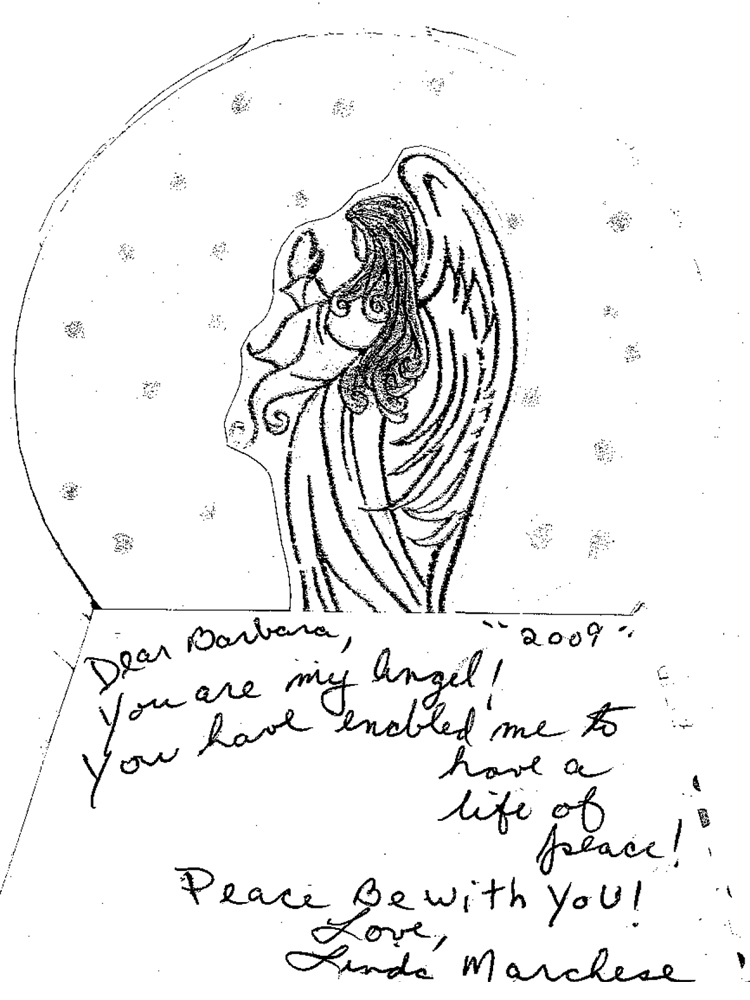 Dear Barbara, "2009"
You are my Angel!
You have enabled me to
have a
life of
peace!
Peace Be with YOU!
Love,
Linda Marchese